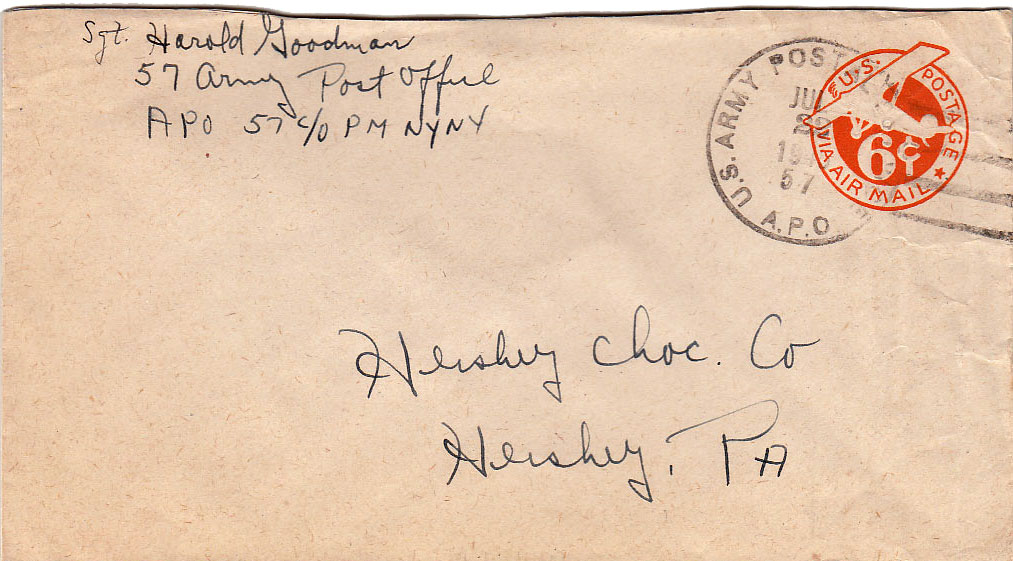 Sgt. Harold Goodman
57 Army Post Office
APO 57 c/o PM NYNY
U.S. ARMY POST
A.P.O.
57
U.S. POSTAGE
6¢
VIA AIR MAIL
Hershey Choc. Co
Hershey, PA